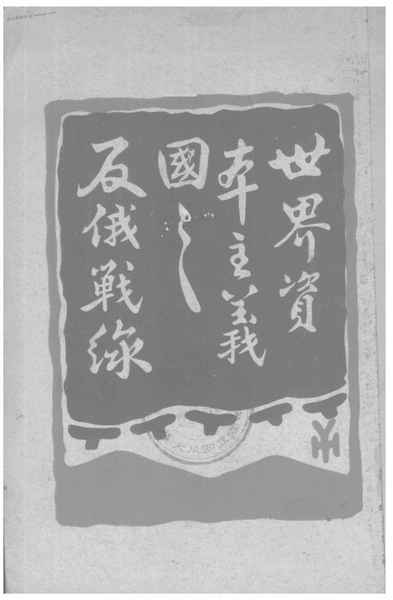 世界資
本主義
國之
反俄戰線